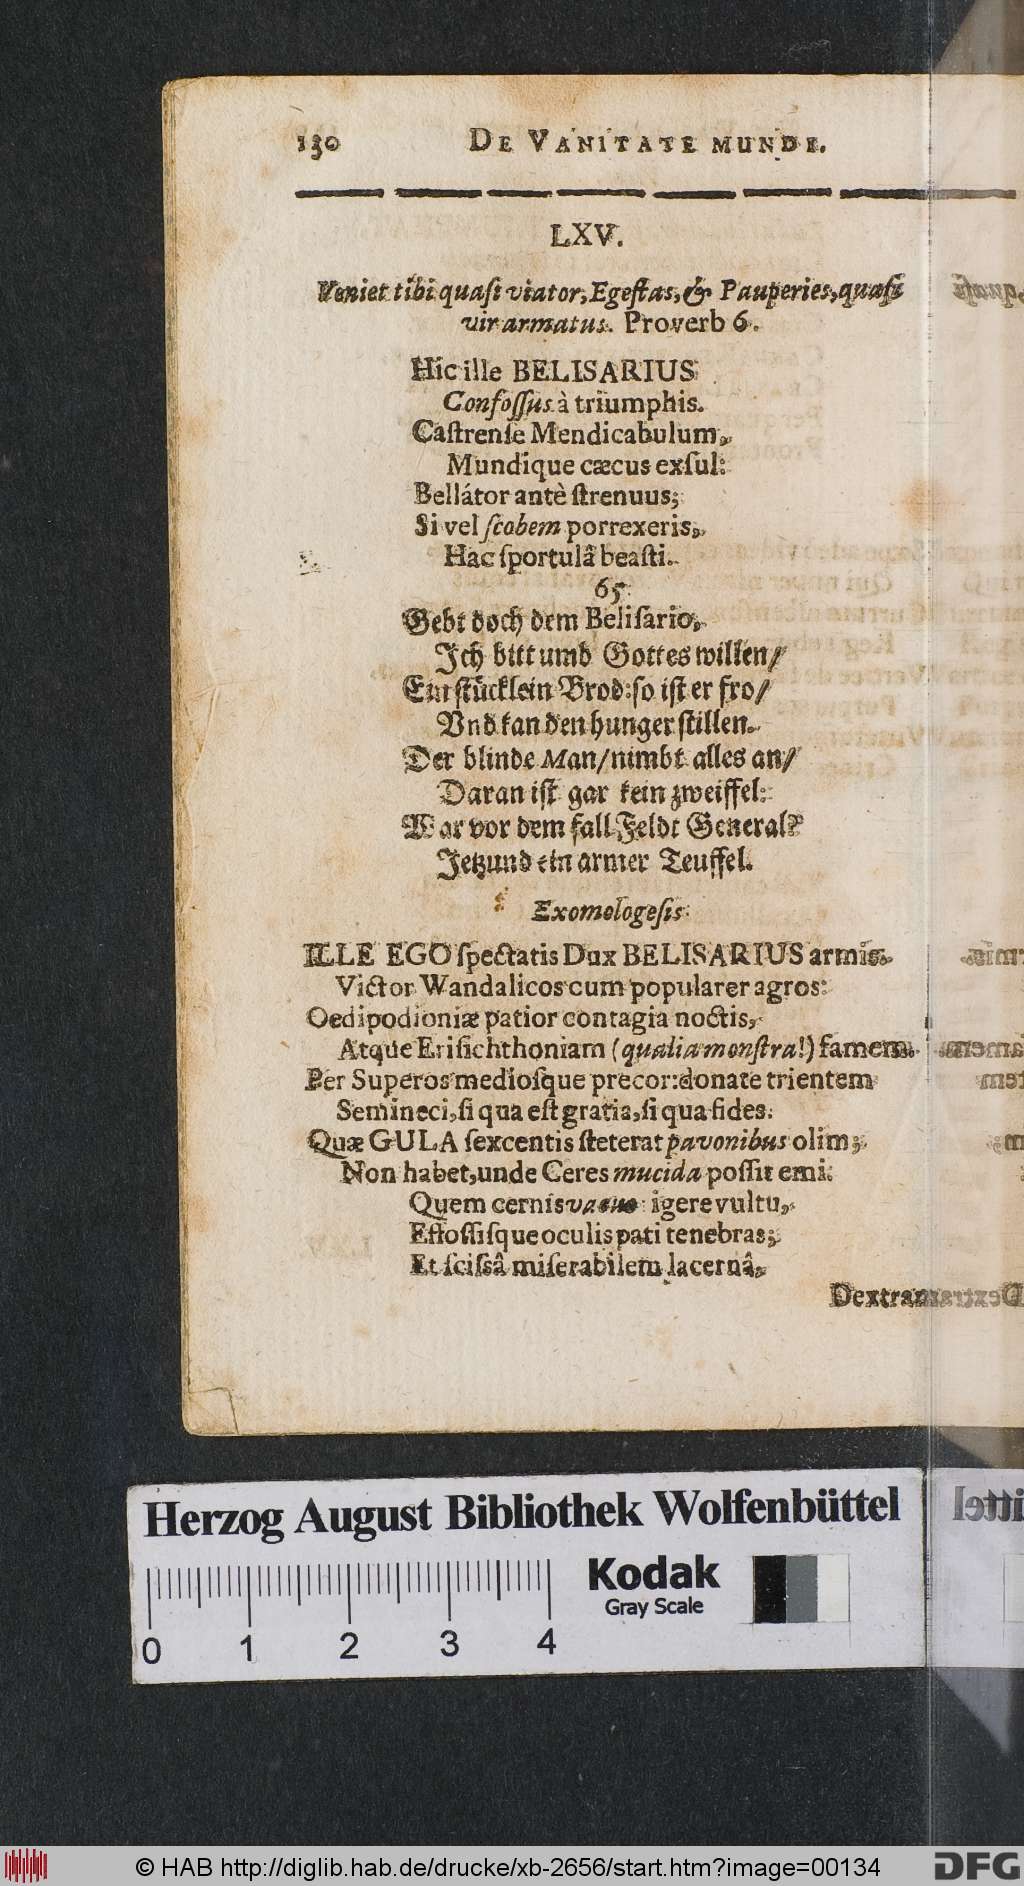 130 DE VANITATE MUNDI.
LXV.
Veniet tibi quaſi viator, Egeſtas, & Pauperies, quaſi
vir armatus. Proverb 6.
Hic ille BELISARIUS
Confoſſus à triumphis.
Caſtrenſe Mendicabulum,
Mundique cæcus exſul:
Bellátor antè ſtrenuus;
Si vel ſcobem porrexeris,
Hac ſportulâ beaſti.
65.
Gebt doch dem Beliſario,
Ich bitt umb Gottes willen/
Ein ſtücklein Brod: ſo iſt er fro/
Vnd kan den hunger ſtillen.
Der blinde Man/ nimbt alles an/
Daran iſt gar kein zweiffel:
War vor dem fall Feldt General?
Jetzund ein armer Teuffel.
Exomologeſis
ILLE EGO ſpectatis Dux BELISARIUS armis.
Victor Wandalicos cum popularer agros:
Oedipodioniæ patior contagia noctis,
Atque Eriſichthoniam (qualia monſtra!) famem.
Per Superos medioſque precor: donate trientem
Semineci, ſi qua eſt gratia, ſi qua fides.
Quæ GULA ſexcentis ſteterat pavonibus olim;
Non habet, unde Ceres mucida poſſit emi.
Quem cernis vacuo igere vultu,
Effoſſiſque oculis pati tenebras;
Et ſciſsâ miſerabilem lacernâ,
Dextram
Herzog August Bibliothek Wolfenbüttel
Kodak
Gray Scale
0 1 2 3 4
© HAB http://diglib.hab.de/drucke/xb-2656/start.htm?image=00134
DFG